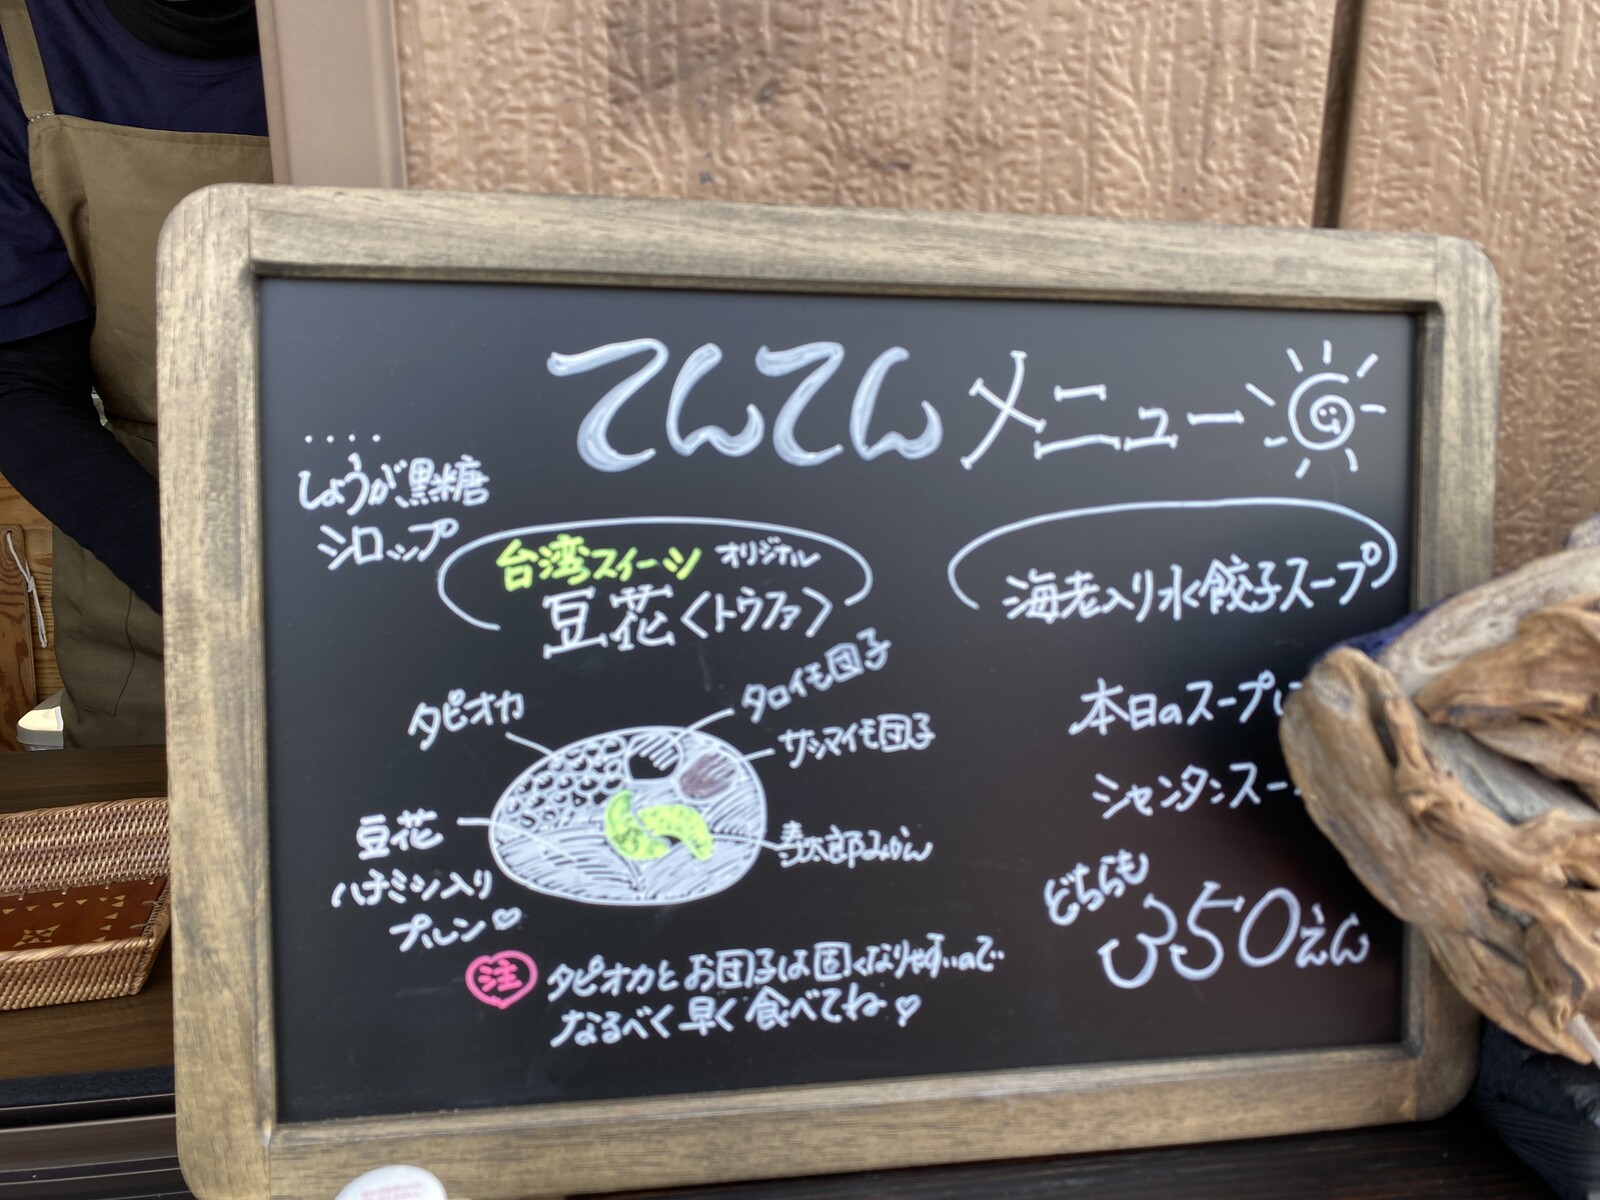 てんてんメニュー
しょうが黒糖
シロップ
台湾スイーツ オリジナル
豆花〈トウファ〉
タピオカ
タロイモ団子
サツマイモ団子
寿太郎みかん
豆花
ハチミツ入り
プルン♡
注 タピオカとお団子は固くなりやすいので
なるべく早く食べてね♡
海老入り水餃子スープ
本日のスープは
シャンタンスー
どちらも
350えん